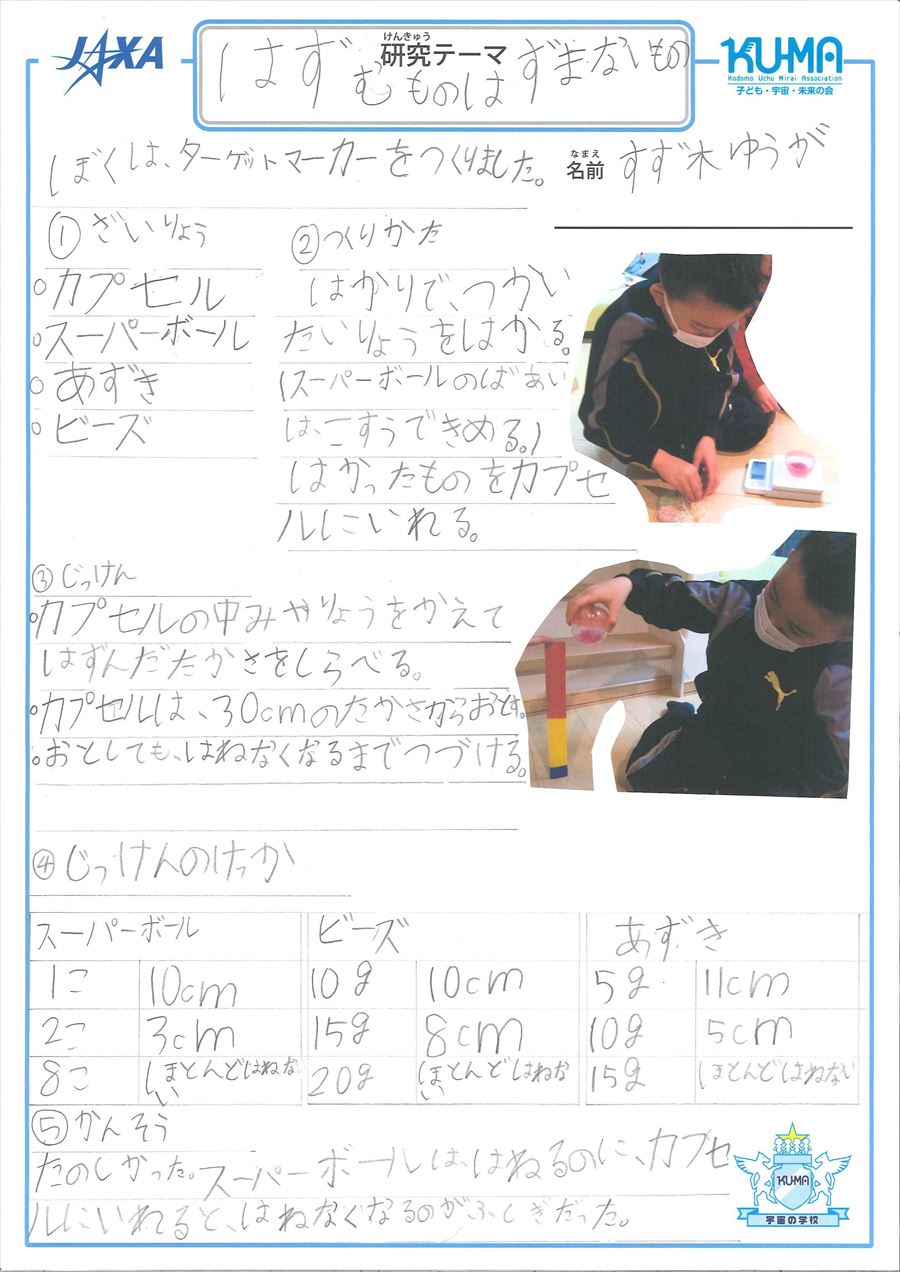 JAXA
けんきゅう
研究テーマ
はずむものはずまないもの
KUMA
Kodomo Uchu Mirai Association
子ども・宇宙・未来の会
ぼくは、ターゲットマーカーをつくりました。
なまえ
名前 すず木ゆうが
①ざいりょう
○カプセル
○スーパーボール
○あずき
○ビーズ
②つくりかた
はかりで、つかい
たいりょうをはかる。
(スーパーボールのばあい
は、こすうできめる。)
はかったものをカプセ
ルにいれる。
③じっけん
○カプセルの中みやりょうをかえて
はずんだたかさをしらべる。
○カプセルは、30cmのたかさからおとす。
○おとしても、はねなくなるまでつづける。
④じっけんのけっか
スーパーボール ビーズ あずき
1こ 10cm 10g 10cm 5g 11cm
2こ 3cm 15g 8cm 10g 5cm
8こ ほとんどはねない 20g ほとんどはねない 15g ほとんどはねない
⑤かんそう
たのしかった。スーパーボールは、はねるのに、カプセ
ルにいれると、はねなくなるのがふしぎだった。
KUMA
宇宙の学校